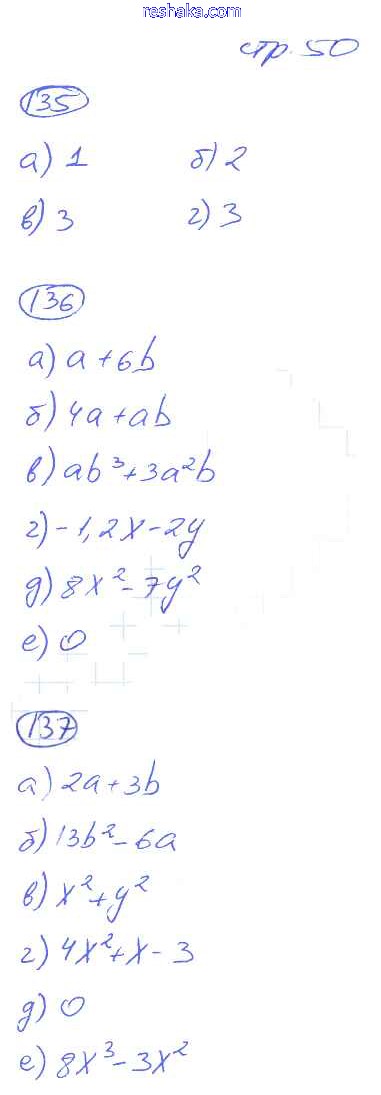 reshaka.com
стр. 50
135
а) 1 б) 2
в) 3 г) 3
136
а) a + 6b
б) 4a + ab
в) ab³ + 3a²b
г) -1,2x - 2y
д) 8x² - 7y²
е) 0
137
а) 2a + 3b
б) 13b² - 6a
в) x² + y²
г) 4x² + x - 3
д) 0
е) 8x³ - 3x²